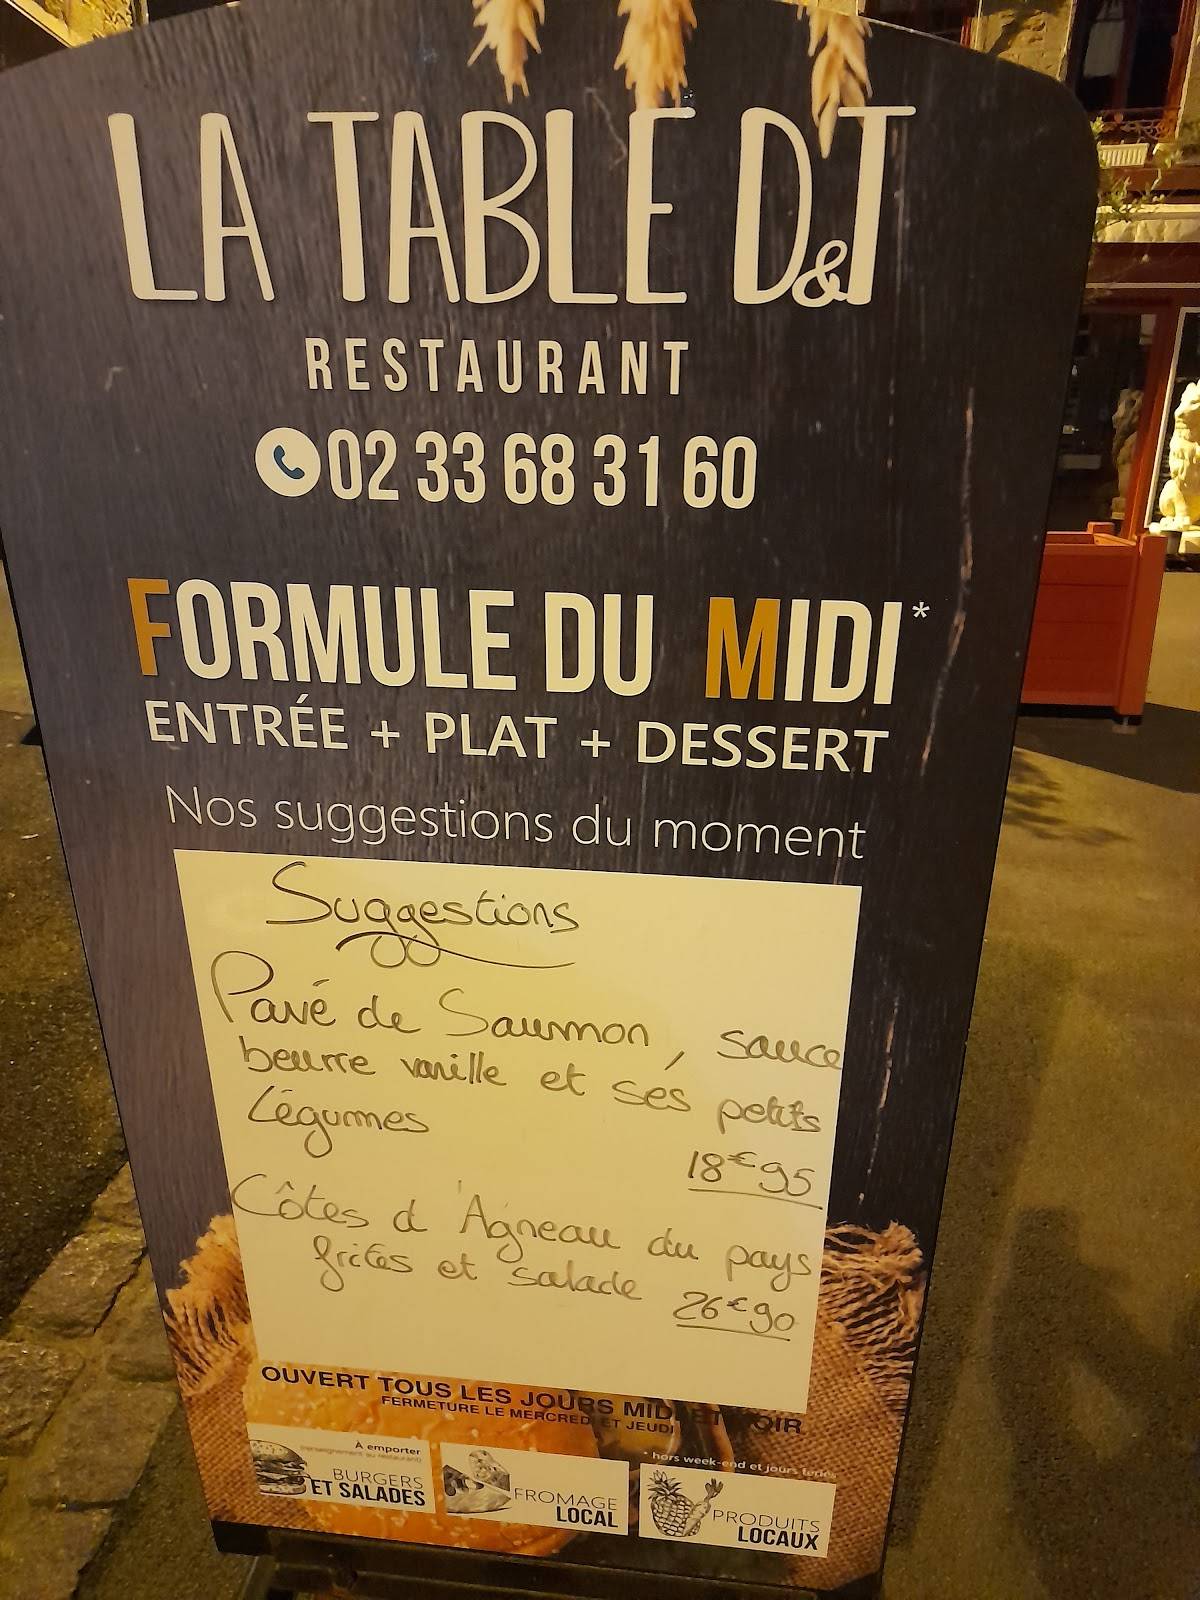 LA TABLE D&T
RESTAURANT
02 33 68 31 60
FORMULE DU MIDI*
ENTRÉE + PLAT + DESSERT
Nos suggestions du moment
Suggestions
Pavé de Saumon, sauce
beurre vanille et sés petits
Légumes
18€95
Côtes d'Agneau du pays
frites et salade
26€90
OUVERT TOUS LES JOURS MIDI ET SOIR
FERMETURE LE MERCREDI ET JEUDI
À emporter
(renseignement au restaurant)
BURGERS
ET SALADES
FROMAGE
LOCAL
* hors week-end et jours fériés
PRODUITS
LOCAUX